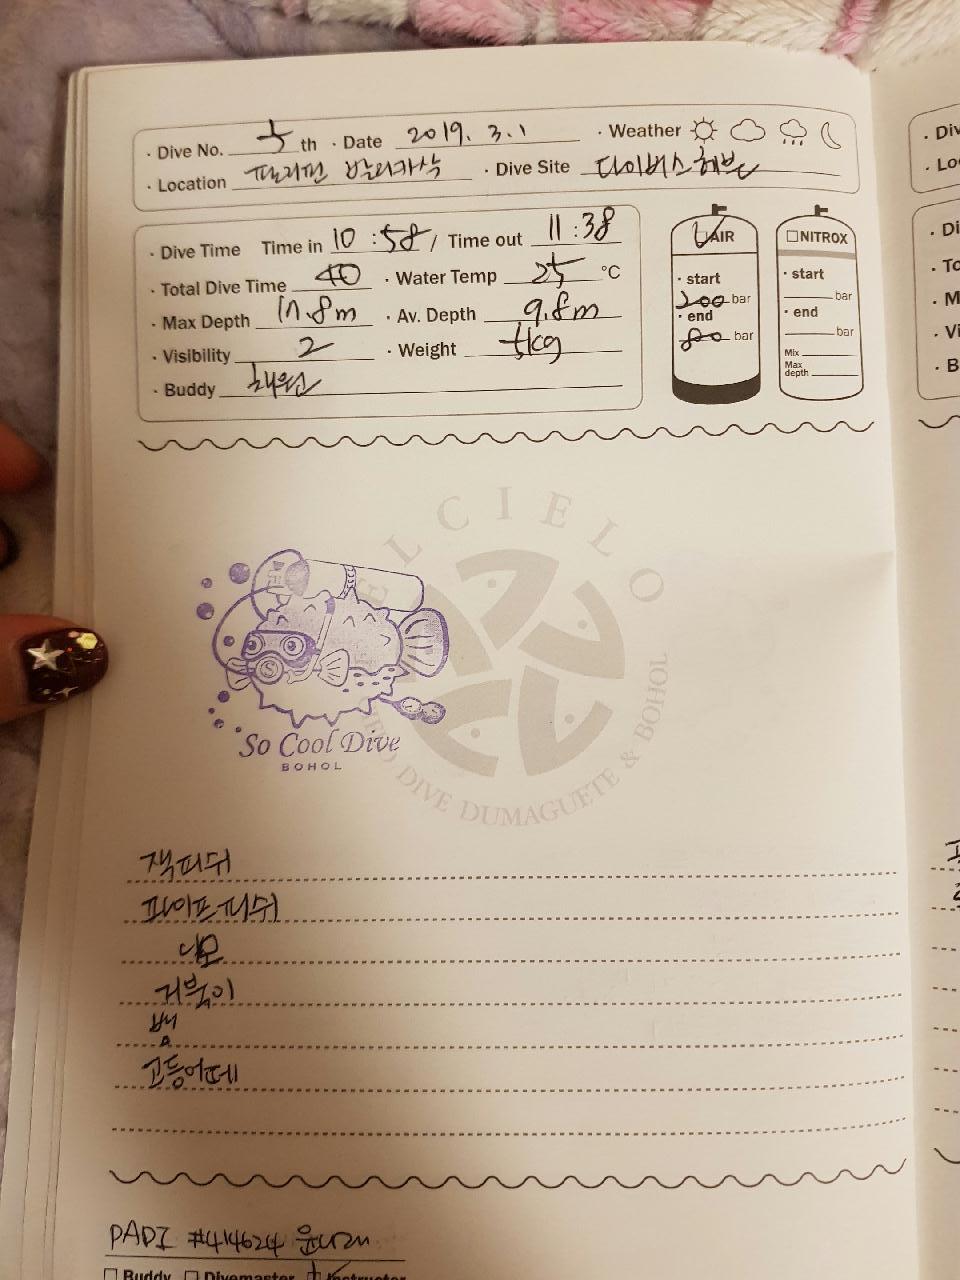 · Dive No. 5 th · Date 2019. 3. 1 · Weather
· Location 필리핀 발리카삭 · Dive Site 다이버스헤븐
· Dive Time Time in 10 : 58 / Time out 11 : 38
· Total Dive Time 40 · Water Temp 25 °C
· Max Depth 17.8m · Av. Depth 9.8m
· Visibility 2 · Weight kg
· Buddy
AIR
· start
200 bar
· end
80 bar
NITROX
· start
bar
· end
bar
Mix
Max
depth
EL CIELO
DIVE DUMAGUETE & BOHOL
So Cool Dive
BOHOL
잭피쉬
파이프피쉬
니모
거북이
뱀
고등어떼
PADI #414624
Buddy Divemaster Instructor
· Div
· Lo
· Di
· To
· M
· Vi
· B